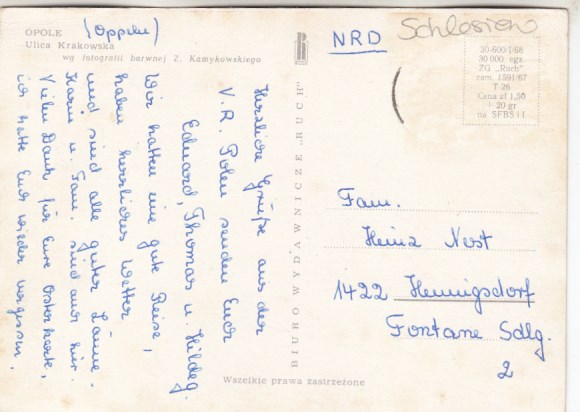 OPOLE (Oppeln)
Ulica Krakowska
wg fotografii barwnej Z. Kamykowskiego
Herzliche Grüße aus der
V.R. Polen senden Euch
Eduard, Thomas u. Hildeg.
Wir hatten eine gute Reise,
haben herrliches Wetter
und sind alle guter Laune.
Karin u. Fam. sind auch hier.
Vielen Dank für Eure Osterkarte,
ich hatte Euch wieder vergessen.
BIURO WYDAWNICZE „RUCH"
NRD
Schlesien
20-600 I/68
30 000 egz.
ZG „Ruch"
zam. 1591/67
T 26
Cena zł 1,50
+ 20 gr
na SFBS i I
Fam.
Heinz Nest
1422 Hennigsdorf
Fontane Sdlg.
2
Wszelkie prawa zastrzeżone